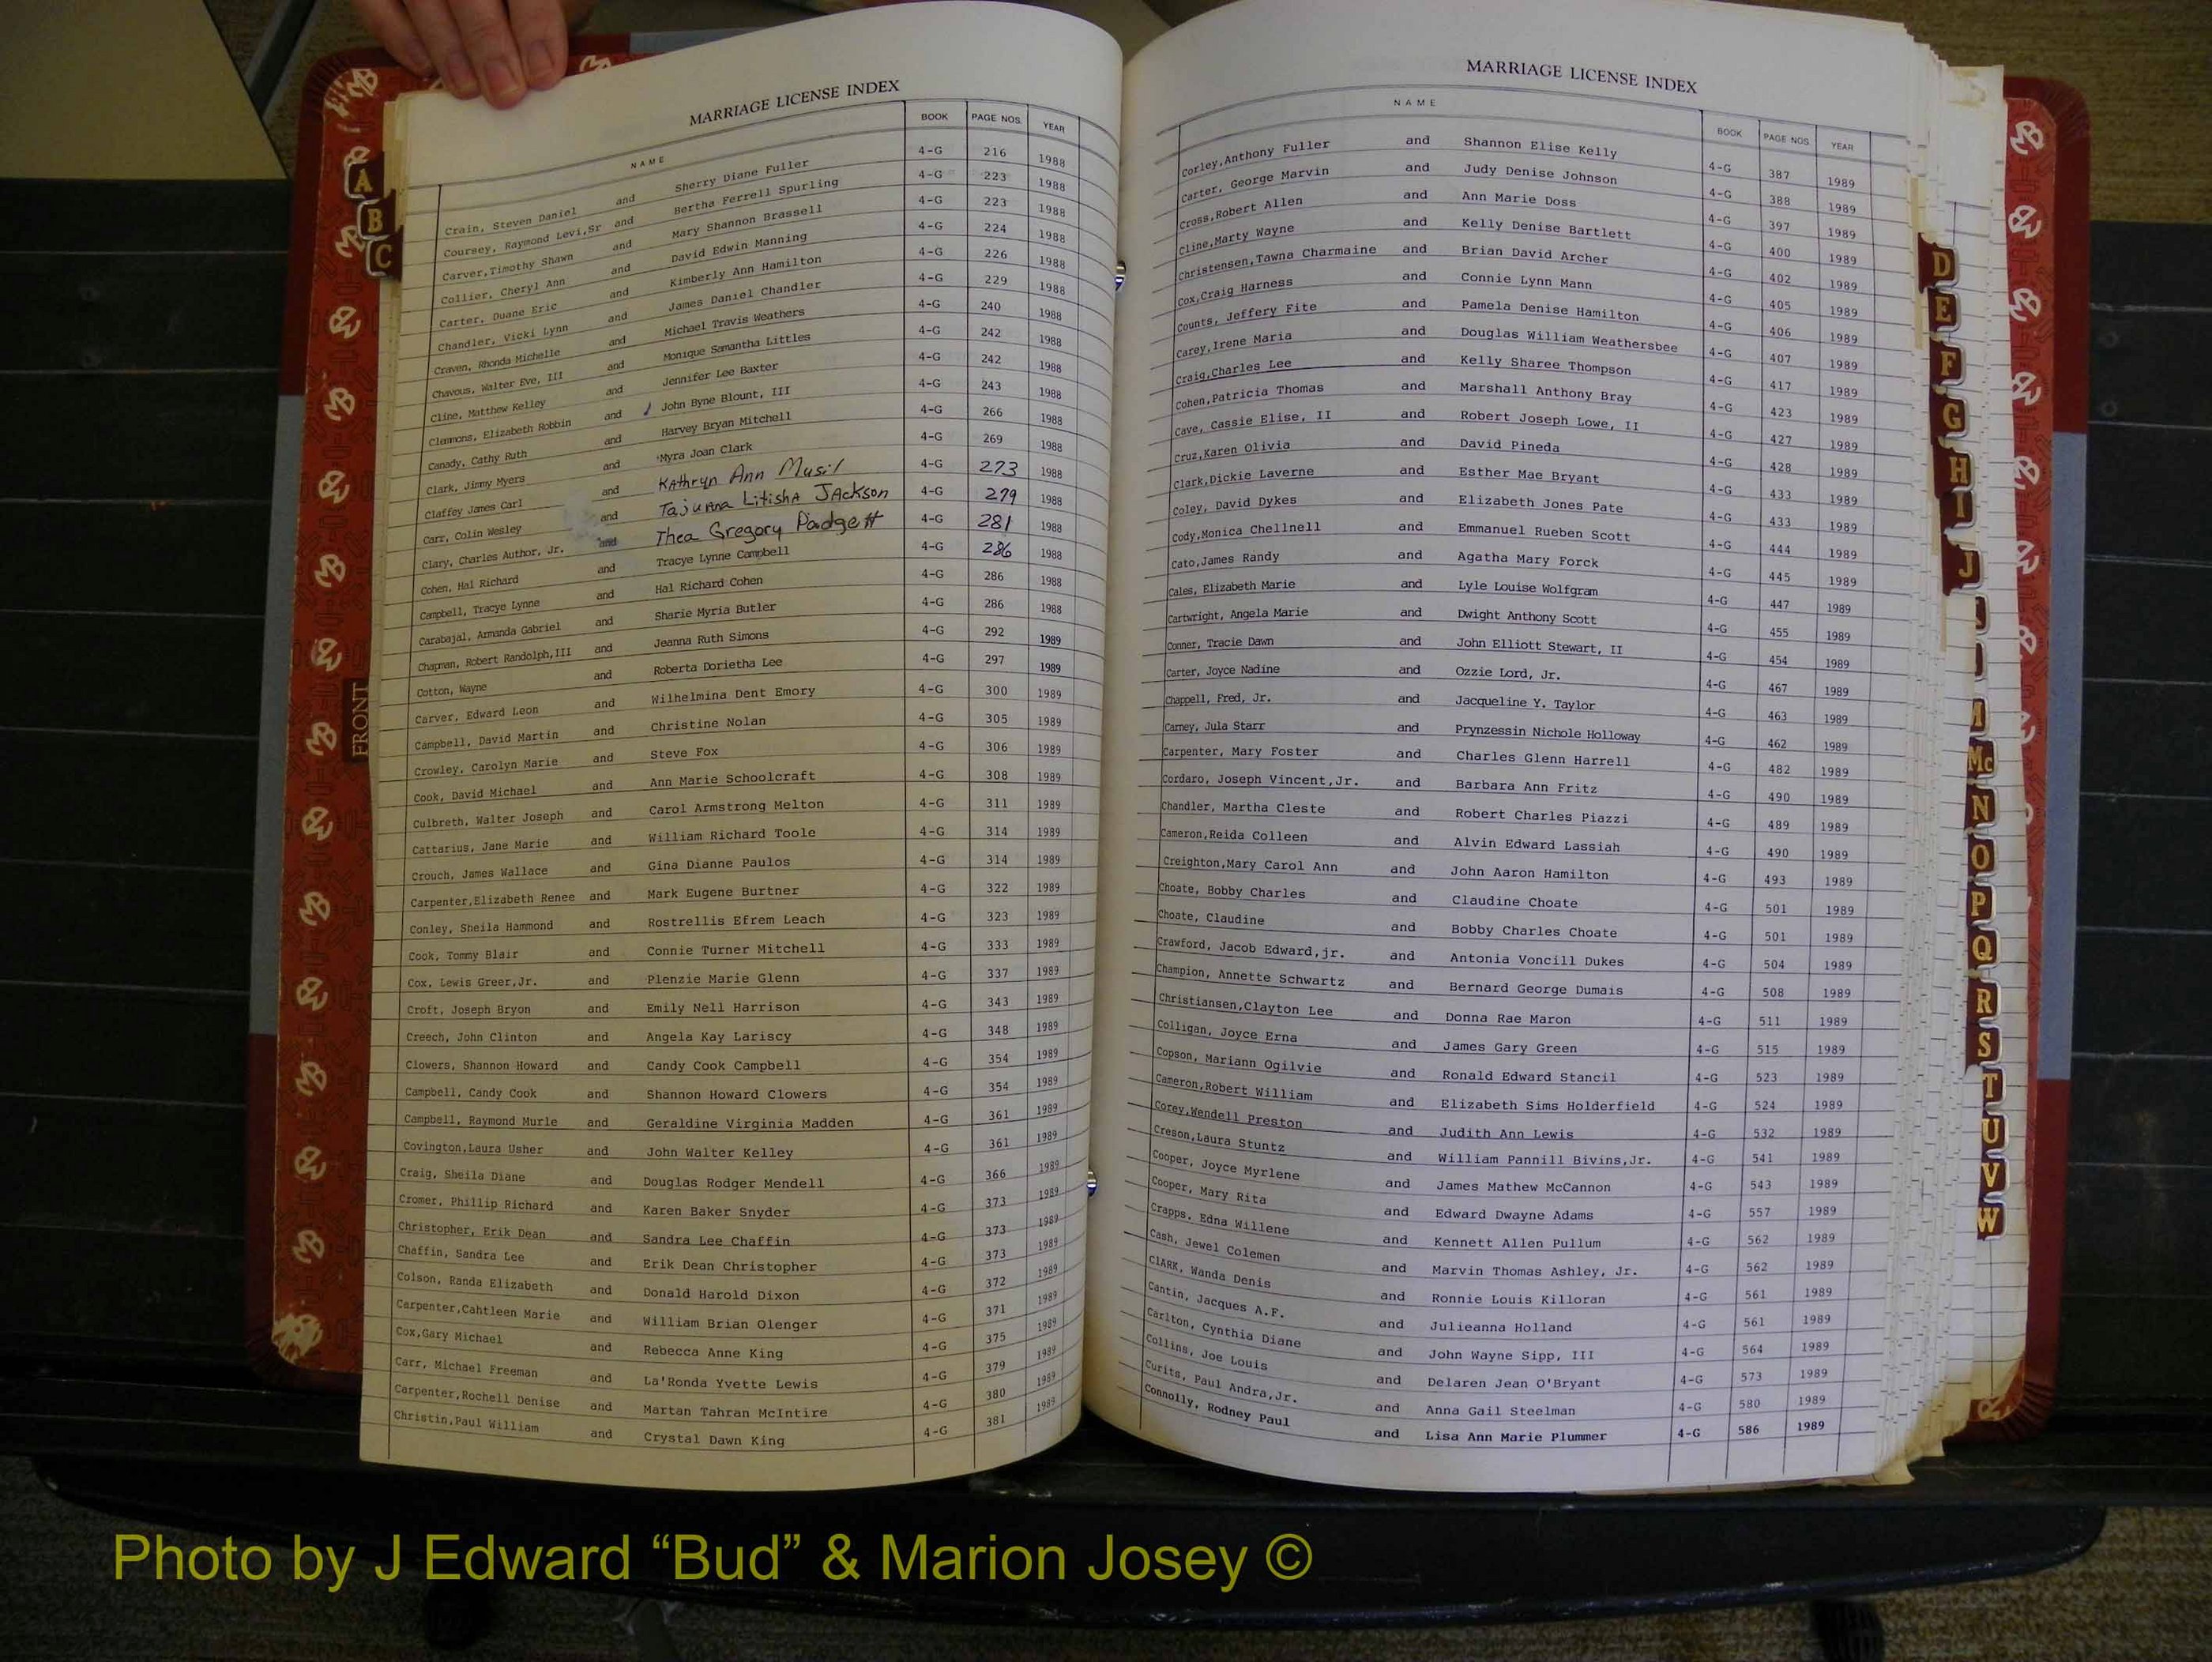 MARRIAGE LICENSE INDEX
NAME BOOK PAGE NOS. YEAR
Crain, Steven Daniel and Sherry Diane Fuller 4-G 216 1988
Coursey, Raymond Levi,Sr and Bertha Ferrell Spurling 4-G 223 1988
Carver,Timothy Shawn and Mary Shannon Brassell 4-G 223 1988
Collier, Cheryl Ann and David Edwin Manning 4-G 224 1988
Carter, Duane Eric and Kimberly Ann Hamilton 4-G 226 1988
Chandler, Vicki Lynn and James Daniel Chandler 4-G 229 1988
Craven, Rhonda Michelle and Michael Travis Weathers 4-G 240 1988
Chavous, Walter Eve, III and Monique Samantha Littles 4-G 242 1988
Cline, Matthew Kelley and Jennifer Lee Baxter 4-G 242 1988
Clemmons, Elizabeth Robbin and John Byne Blount, III 4-G 243 1988
Canady, Cathy Ruth and Harvey Bryan Mitchell 4-G 266 1988
Clark, Jimmy Myers and Myra Joan Clark 4-G 269 1988
Claffey James Carl and Kathryn Ann Musil 4-G 273 1988
Carr, Colin Wesley and Tajuana Litisha Jackson 4-G 279 1988
Clary, Charles Author, Jr. and Thea Gregory Padgett 4-G 281 1988
Cohen, Hal Richard and Tracye Lynne Campbell 4-G 286 1988
Campbell, Tracye Lynne and Hal Richard Cohen 4-G 286 1988
Carabajal, Armanda Gabriel and Sharie Myria Butler 4-G 286 1988
Chapman, Robert Randolph,III and Jeanna Ruth Simons 4-G 292 1989
Cotton, Wayne and Roberta Dorietha Lee 4-G 297 1989
Carver, Edward Leon and Wilhelmina Dent Emory 4-G 300 1989
Campbell, David Martin and Christine Nolan 4-G 305 1989
Crowley, Carolyn Marie and Steve Fox 4-G 306 1989
Cook, David Michael and Ann Marie Schoolcraft 4-G 308 1989
Culbreth, Walter Joseph and Carol Armstrong Melton 4-G 311 1989
Cattarius, Jane Marie and William Richard Toole 4-G 314 1989
Crouch, James Wallace and Gina Dianne Paulos 4-G 314 1989
Carpenter,Elizabeth Renee and Mark Eugene Burtner 4-G 322 1989
Conley, Sheila Hammond and Rostrellis Efrem Leach 4-G 323 1989
Cook, Tommy Blair and Connie Turner Mitchell 4-G 333 1989
Cox, Lewis Greer,Jr. and Plenzie Marie Glenn 4-G 337 1989
Croft, Joseph Bryon and Emily Nell Harrison 4-G 343 1989
Creech, John Clinton and Angela Kay Lariscy 4-G 348 1989
Clowers, Shannon Howard and Candy Cook Campbell 4-G 354 1989
Campbell, Candy Cook and Shannon Howard Clowers 4-G 354 1989
Campbell, Raymond Murle and Geraldine Virginia Madden 4-G 361 1989
Covington,Laura Usher and John Walter Kelley 4-G 361 1989
Craig, Sheila Diane and Douglas Rodger Mendell 4-G 366 1989
Cromer, Phillip Richard and Karen Baker Snyder 4-G 373 1989
Christopher, Erik Dean and Sandra Lee Chaffin 4-G 373 1989
Chaffin, Sandra Lee and Erik Dean Christopher 4-G 373 1989
Colson, Randa Elizabeth and Donald Harold Dixon 4-G 372 1989
Carpenter,Cahtleen Marie and William Brian Olenger 4-G 371 1989
Cox,Gary Michael and Rebecca Anne King 4-G 375 1989
Carr, Michael Freeman and La'Ronda Yvette Lewis 4-G 379 1989
Carpenter,Rochell Denise and Martan Tahran McIntire 4-G 380 1989
Christin,Paul William and Crystal Dawn King 4-G 381 1989
MARRIAGE LICENSE INDEX
NAME BOOK PAGE NOS YEAR
Corley,Anthony Fuller and Shannon Elise Kelly 4-G 387 1989
Carter, George Marvin and Judy Denise Johnson 4-G 388 1989
Cross,Robert Allen and Ann Marie Doss 4-G 397 1989
Cline,Marty Wayne and Kelly Denise Bartlett 4-G 400 1989
Christensen,Tawna Charmaine and Brian David Archer 4-G 402 1989
Cox,Craig Harness and Connie Lynn Mann 4-G 405 1989
Counts, Jeffery Fite and Pamela Denise Hamilton 4-G 406 1989
Carey,Irene Maria and Douglas William Weathersbee 4-G 407 1989
Craig,Charles Lee and Kelly Sharee Thompson 4-G 417 1989
Cohen,Patricia Thomas and Marshall Anthony Bray 4-G 423 1989
Cave, Cassie Elise, II and Robert Joseph Lowe, II 4-G 427 1989
Cruz,Karen Olivia and David Pineda 4-G 428 1989
Clark,Dickie Laverne and Esther Mae Bryant 4-G 433 1989
Coley, David Dykes and Elizabeth Jones Pate 4-G 433 1989
Cody,Monica Chellnell and Emmanuel Rueben Scott 4-G 444 1989
Cato,James Randy and Agatha Mary Forck 4-G 445 1989
Cales, Elizabeth Marie and Lyle Louise Wolfgram 4-G 447 1989
Cartwright, Angela Marie and Dwight Anthony Scott 4-G 455 1989
Conner, Tracie Dawn and John Elliott Stewart, II 4-G 454 1989
Carter, Joyce Nadine and Ozzie Lord, Jr. 4-G 467 1989
Chappell, Fred, Jr. and Jacqueline Y. Taylor 4-G 463 1989
Carney, Jula Starr and Prynzessin Nichole Holloway 4-G 462 1989
Carpenter, Mary Foster and Charles Glenn Harrell 4-G 482 1989
Cordaro, Joseph Vincent,Jr. and Barbara Ann Fritz 4-G 490 1989
Chandler, Martha Cleste and Robert Charles Piazzi 4-G 489 1989
Cameron,Reida Colleen and Alvin Edward Lassiah 4-G 490 1989
Creighton,Mary Carol Ann and John Aaron Hamilton 4-G 493 1989
Choate, Bobby Charles and Claudine Choate 4-G 501 1989
Choate, Claudine and Bobby Charles Choate 4-G 501 1989
Crawford, Jacob Edward,jr. and Antonia Voncill Dukes 4-G 504 1989
Champion, Annette Schwartz and Bernard George Dumais 4-G 508 1989
Christiansen,Clayton Lee and Donna Rae Maron 4-G 511 1989
Colligan, Joyce Erna and James Gary Green 4-G 515 1989
Copson, Mariann Ogilvie and Ronald Edward Stancil 4-G 523 1989
Cameron,Robert William and Elizabeth Sims Holderfield 4-G 524 1989
Corey,Wendell Preston and Judith Ann Lewis 4-G 532 1989
Creson,Laura Stuntz and William Pannill Bivins,Jr. 4-G 541 1989
Cooper, Joyce Myrlene and James Mathew McCannon 4-G 543 1989
Cooper, Mary Rita and Edward Dwayne Adams 4-G 557 1989
Crapps. Edna Willene and Kennett Allen Pullum 4-G 562 1989
Cash, Jewel Colemen and Marvin Thomas Ashley, Jr. 4-G 562 1989
ClARK, Wanda Denis and Ronnie Louis Killoran 4-G 561 1989
Cantin, Jacques A.F. and Julieanna Holland 4-G 561 1989
Carlton, Cynthia Diane and John Wayne Sipp, III 4-G 564 1989
Collins, Joe Louis and Delaren Jean O'Bryant 4-G 573 1989
Curits, Paul Andra,Jr. and Anna Gail Steelman 4-G 580 1989
Connolly, Rodney Paul and Lisa Ann Marie Plummer 4-G 586 1989
A
B
C
FRONT
D
E
F
G
H
I
J
M
Mc
N
O
P
Q
R
S
T
U
V
W
Photo by J Edward “Bud” & Marion Josey ©